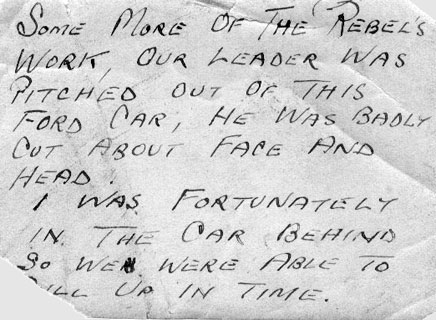 SOME MORE OF THE REBEL'S
WORK, OUR LEADER WAS
PITCHED OUT OF THIS
FORD CAR, HE WAS BADLY
CUT ABOUT FACE AND
HEAD.
I WAS FORTUNATELY
IN THE CAR BEHIND
SO WE WERE ABLE TO
PULL UP IN TIME.